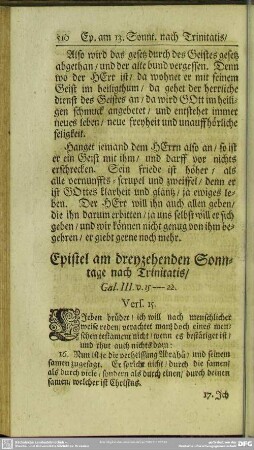 310 Ep. am 13. Sonnt. nach Trinitatis/
Also wird das gesetz durch des Geistes gesetz
abgethan/ und der alte bund vergessen. Denn
wo der HErr ist/ da wohnet er mit seinem
Geist im heiligthum/ da gehet der herrliche
dienst des Geistes an/ da wird GOtt im heili-
gen schmuck angebetet/ und entstehet immer
neues leben/ neue freyheit und unauffhörliche
seligkeit.
Hanget jemand dem HErrn also an/ so ist
er ein Geist mit ihm/ und darff vor nichts
erschrecken. Sein friede ist höher/ als
alle vernunffts/ scrupel und zweiffel/ denn er
ist GOttes klarheit und glantz/ ja ewiges le-
ben. Der HErr will ihn auch allen geben/
die ihn darum erbitten/ ja uns selbst will er sich
geben/ und wir können nicht genug von ihm be-
gehren/ er giebt gerne noch mehr.
Epistel am dreyzehenden Sonn-
tage nach Trinitatis/
Gal. III. v. 15—22.
Vers. 15.
LIeben brüder/ ich will nach menschlicher
weise reden/ verachtet man doch eines men-
schen testament nicht/ wenn es bestätiget ist/
und thut auch nichts dazu:
16. Nun ist je die verheissung Abrahä/ und seinem
samen zugesagt. Er spricht nicht/ durch die samen/
als durch viele/ sondern als durch einen/ durch deinen
samen/ welcher ist Christus.
17. Ich